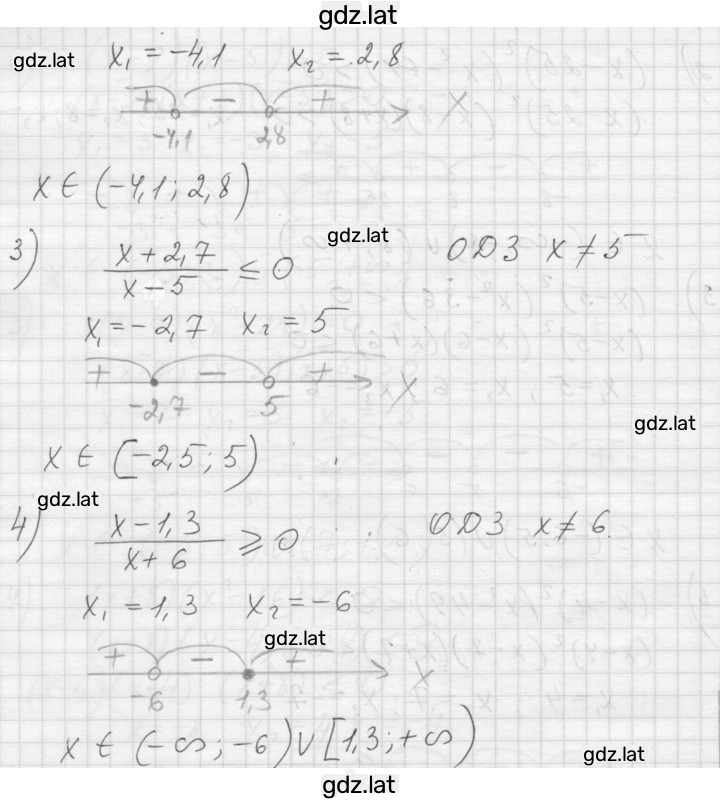 gdz.lat
gdz.lat x₁ = -4,1 x₂ = 2,8
+ - + x
-4,1 2,8
x ∈ (-4,1; 2,8)
gdz.lat
3) (x + 2,7)/(x - 5) ≤ 0 ОДЗ x ≠ 5
x₁ = -2,7 x₂ = 5
+ - + x
-2,7 5
gdz.lat
x ∈ [-2,5; 5)
gdz.lat
4) (x - 1,3)/(x + 6) ⩾ 0 ОДЗ x ≠ 6.
x₁ = 1,3 x₂ = -6
gdz.lat
+ - + x
-6 1,3
x ∈ (-∞; -6) ∪ [1,3; +∞)
gdz.lat
gdz.lat